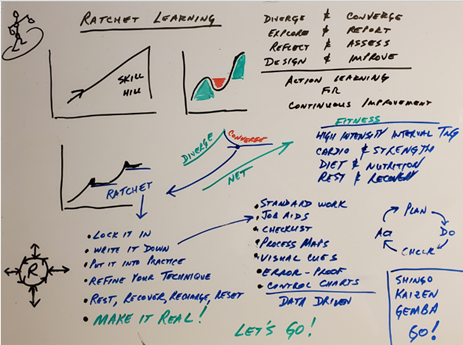 RATCHET LEARNING
DIVERGE & CONVERGE
EXPLORE & REPORT
REFLECT & ASSESS
DESIGN & IMPROVE
ACTION LEARNING
FOR
CONTINUOUS IMPROVEMENT
SKILL
HILL
FITNESS
HIGH INTENSITY INTERVAL TNG
CARDIO & STRENGTH
DIET & NUTRITION
REST & RECOVERY
DIVERGE
CONVERGE
NET
RATCHET
LOCK IT IN
WRITE IT DOWN
PUT IT INTO PRACTICE
REFINE YOUR TECHNIQUE
REST, RECOVER, RECHARGE, RESET
MAKE IT REAL!
R
STANDARD WORK
JOB AIDS
CHECKLIST
PROCESS MAPS
VISUAL CUES
ERROR-PROOF
CONTROL CHARTS
DATA DRIVEN
LET'S GO!
PLAN
DO
CHECK
ACT
SHINGO
KAIZEN
GEMBA
GO!